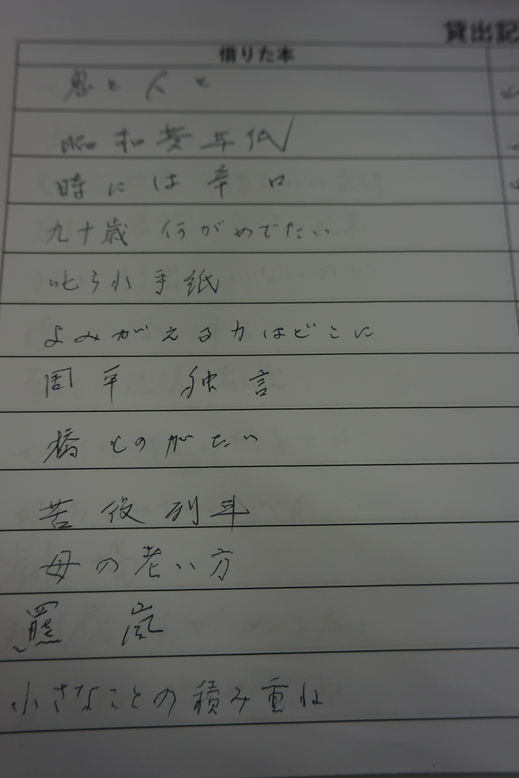 貸出記
借りた本
鬼と人と
昭和
時には辛口
九十歳 何がめでたい
叱られ手紙
よみがえる力はどこに
周平 独言
橋ものがたり
苦役列車
母の老い方
羆嵐
小さなことの積み重ね